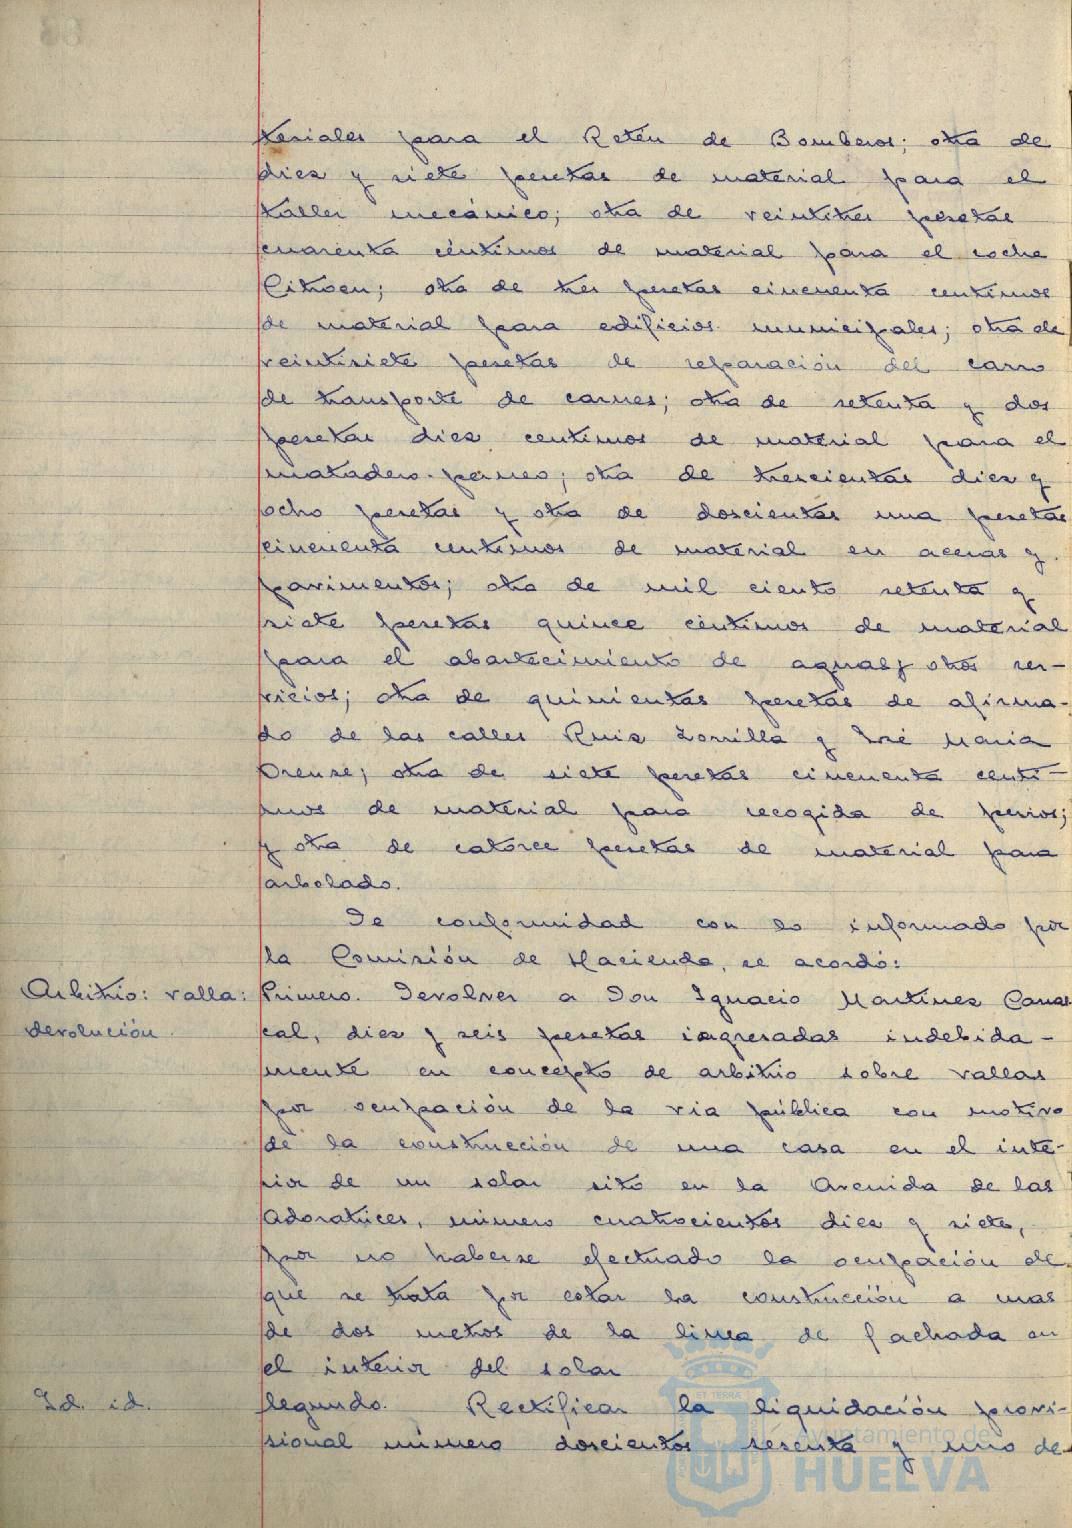 teriales para el Retén de Bomberos; otra de
diez y siete pesetas de material para el
taller mecánico; otra de veintitres pesetas
cuarenta céntimos de material para el coche
Citroen; otra de tres pesetas cincuenta centimos
de material para edificios municipales; otra de
veintisiete pesetas de reparación del carro
de transporte de carnes; otra de setenta y dos
pesetas diez centimos de material para el
matadero perreo; otra de trescientas diez y
ocho pesetas y otra de doscientas una pesetas
cincuenta centimos de material en aceras y
pavimentos; otra de mil ciento setenta y
siete pesetas quince céntimos de material
para el abastecimiento de aguas y otros ser-
vicios; otra de quinientas pesetas de afirma-
do de las calles Ruiz Zorrilla y José Maria
Orense; otra de siete pesetas cincuenta centi-
mos de material para recogida de perros;
y otra de catorce pesetas de material para
arbolado.
De conformidad con lo informado por
la Comisión de Hacienda, se acordó:
Arbitrio: valla: Primero. Devolver a Don Ignacio Martínez Canas
devolución cal, diez y seis pesetas ingresadas indebida-
mente en concepto de arbitrio sobre vallas
por ocupación de la via pública con motivo
de la construcción de una casa en el inte-
rior de un solar sito en la Avenida de las
Adoratrices, número cuatrocientos diez y siete,
por no haberse efectuado la ocupación de
que se trata por estar la construcción a mas
de dos metros de la linea de fachada en
el interior del solar
Id. id. Segundo. Rectificar la liquidación provi-
sional número doscientos sesenta y uno de
ET TERRA
Ayuntamiento de
HUELVA